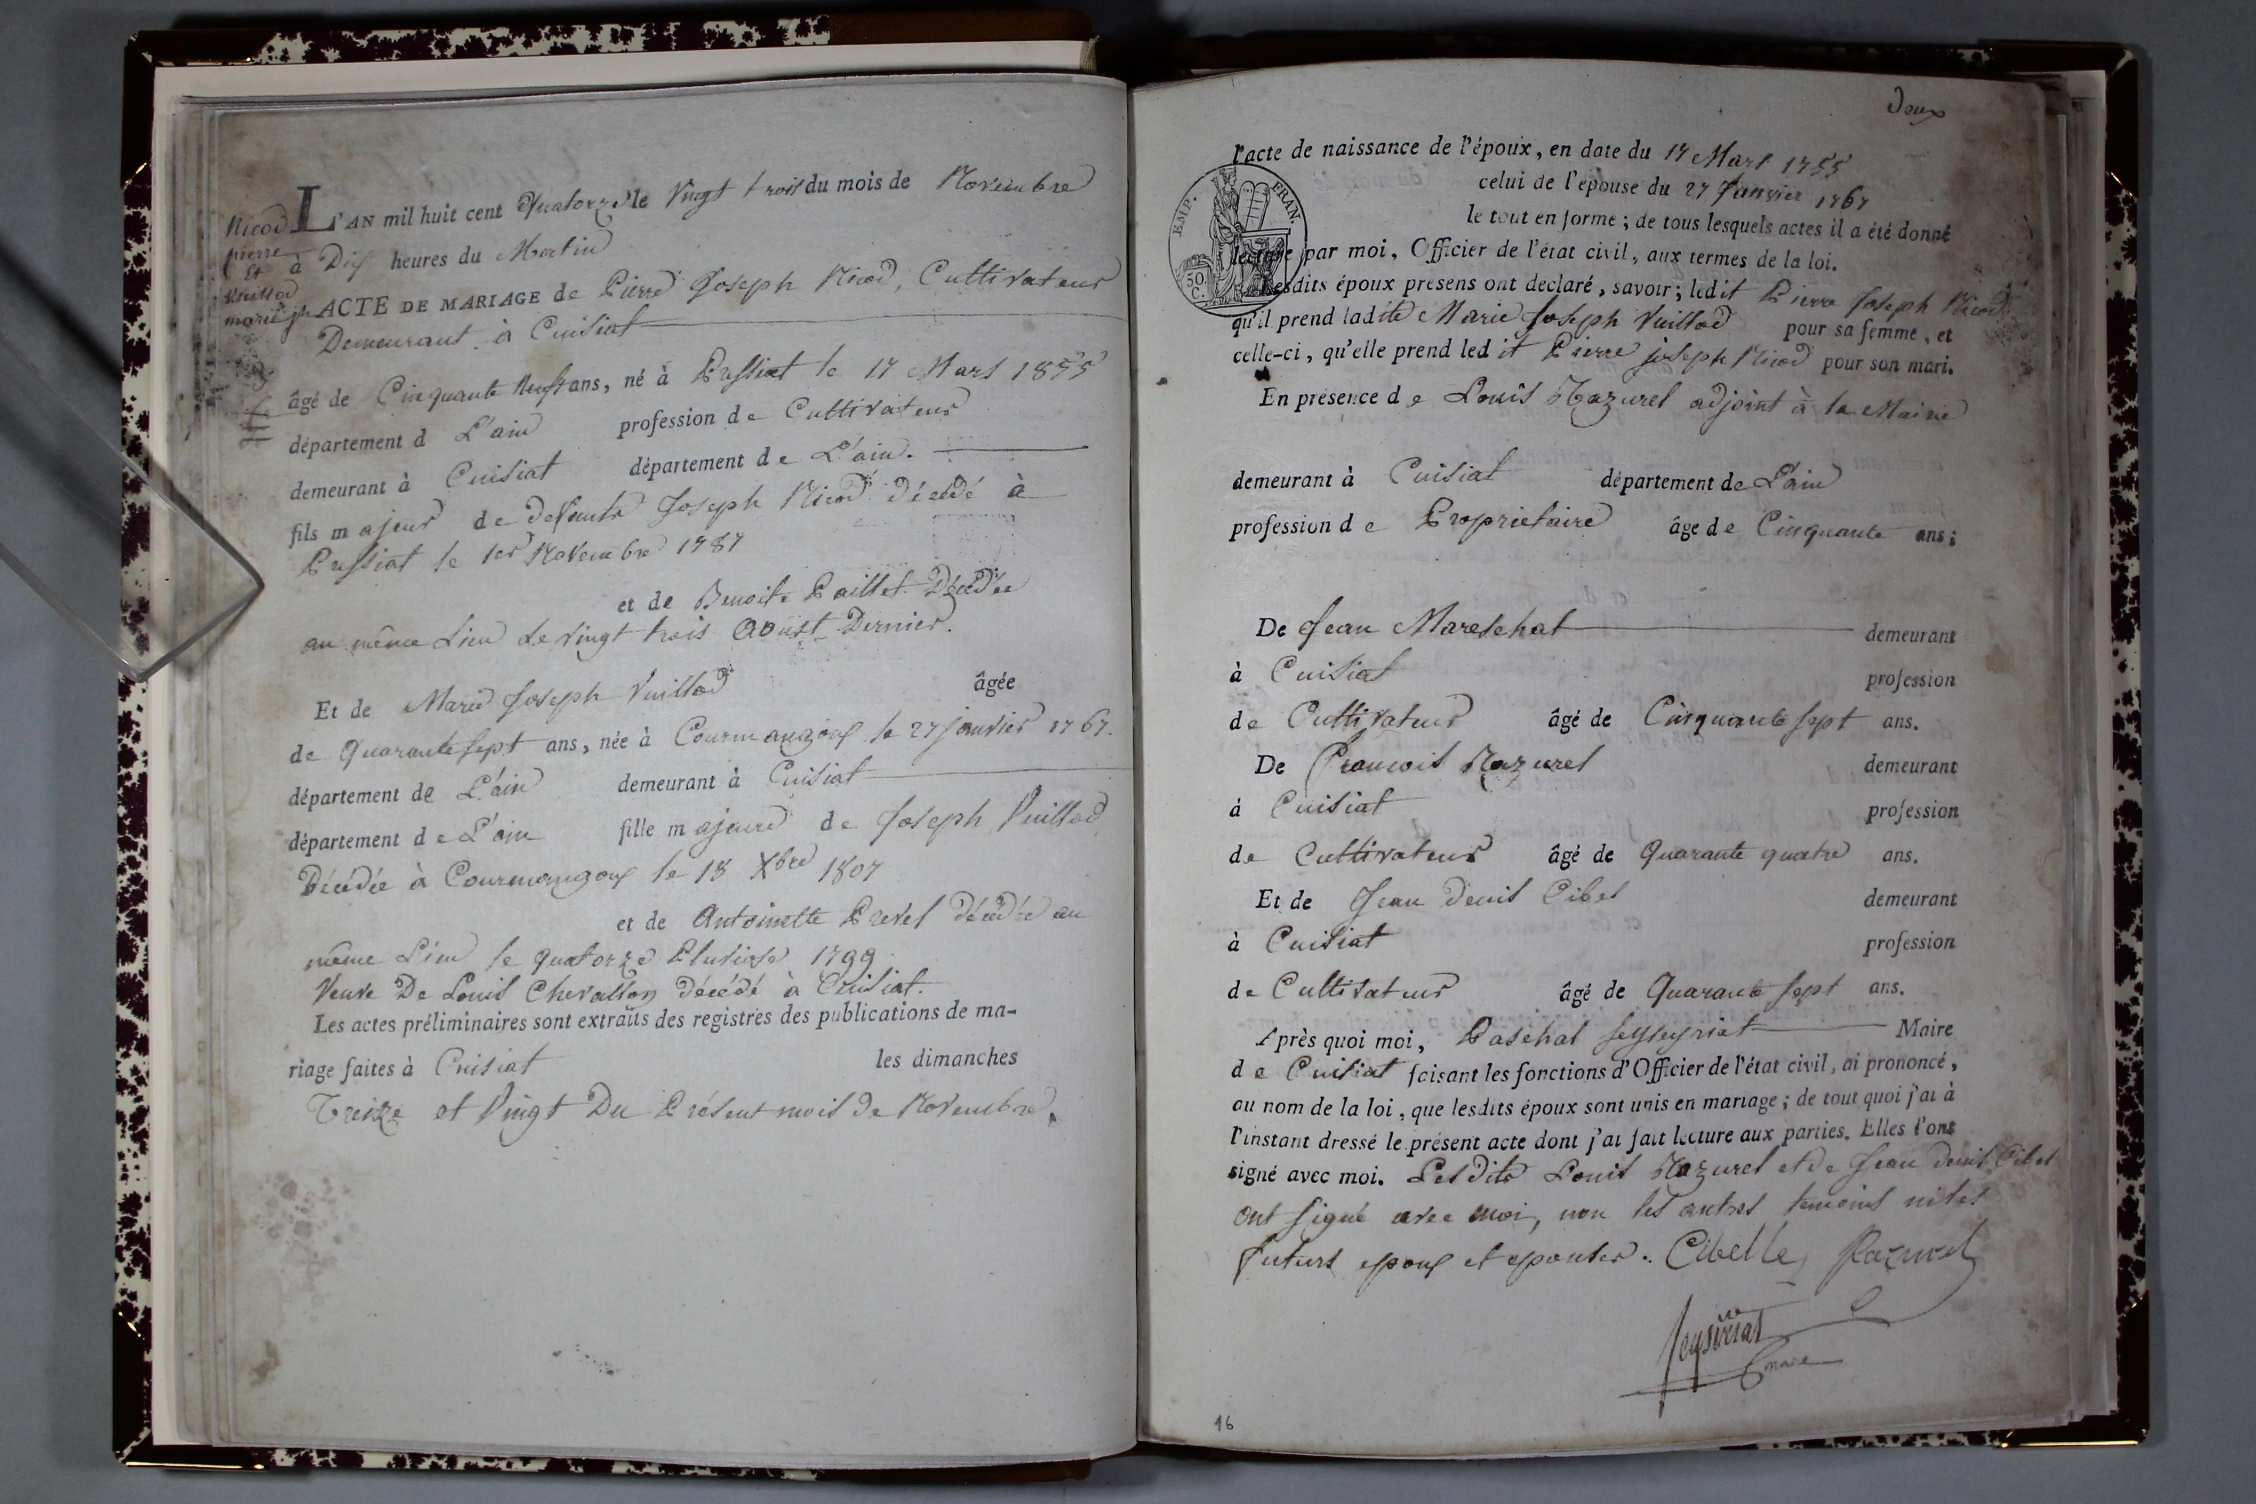 Nicod
pierre
et
Vuillod
marie jph
L'AN mil huit cent Quatorze le Vingt trois du mois de Novembre
à Dix heures du Matin
ACTE DE MARIAGE de Pierre Joseph Nicod, Cultivateur
Demeurant à Cuisiat
âgé de Cinquante Neuf ans, né à Pressiat le 17 Mars 1855
département d L'ain profession de Cultivateur
demeurant à Cuisiat département de L'ain.
fils majeur de defunts Joseph Nicod décédé à
Pressiat le 1er Novembre 1787
et de Benoite Paillet Décédée
au même Lieu Le vingt trois Aoust Dernier.
Et de Marie Joseph Vuillod âgée
de Quarante sept ans, née à Courmangoux le 27 janvier 1767.
département de L'ain demeurant à Cuisiat
département de L'ain fille majeure de Joseph Vuillod
Décédée à Courmangoux le 18 Xbre 1807
et de Antoinette Prevel décédée au
même Lieu le quatorze Pluviose 1799
Veuve De Louis Chevallon décédé à Cuisiat.
Les actes préliminaires sont extraits des registres des publications de ma-
riage faites à Cuisiat les dimanches
Treize et Vingt Du Présent mois de Novembre.
Deux
l'acte de naissance de l'époux, en date du 17 Mars 1755
celui de l'épouse du 27 Janvier 1767
le tout en forme; de tous lesquels actes il a été donné
lecture par moi, Officier de l'état civil, aux termes de la loi.
Lesdits époux présens ont déclaré, savoir; ledit Pierre Joseph Nicod
qu'il prend ladite Marie Joseph Vuillod pour sa femme, et
celle-ci, qu'elle prend ledit Pierre joseph Nicod pour son mari.
En présence de Louis Mazurel adjoint à la Mairie
demeurant à Cuisiat département de L'ain
profession de Proprietaire âge de Cinquante ans;
De Jean Mareschal demeurant
à Cuisiat profession
de Cultivateur âgé de Cinquante sept ans.
De Francois Mazurel demeurant
à Cuisiat profession
de Cultivateur âgé de Quarante quatre ans.
Et de Jean Denis Cibel demeurant
à Cuisiat profession
de Cultivateur âgé de Quarante sept ans.
Après quoi moi, Paschal Seyseyriat Maire
de Cuisiat faisant les fonctions d'Officier de l'état civil, ai prononcé,
au nom de la loi, que lesdits époux sont unis en mariage; de tout quoi j'ai à
l'instant dressé le présent acte dont j'ai fait lecture aux parties. Elles l'ont
signé avec moi. Les dits Louis Mazurel et de Jean denis Cibel
ont signé avec moi, non les autres temoins ni les
futurs epoux et epouses. Cibelle
maire
EMP. FRAN.
50.
C.
16